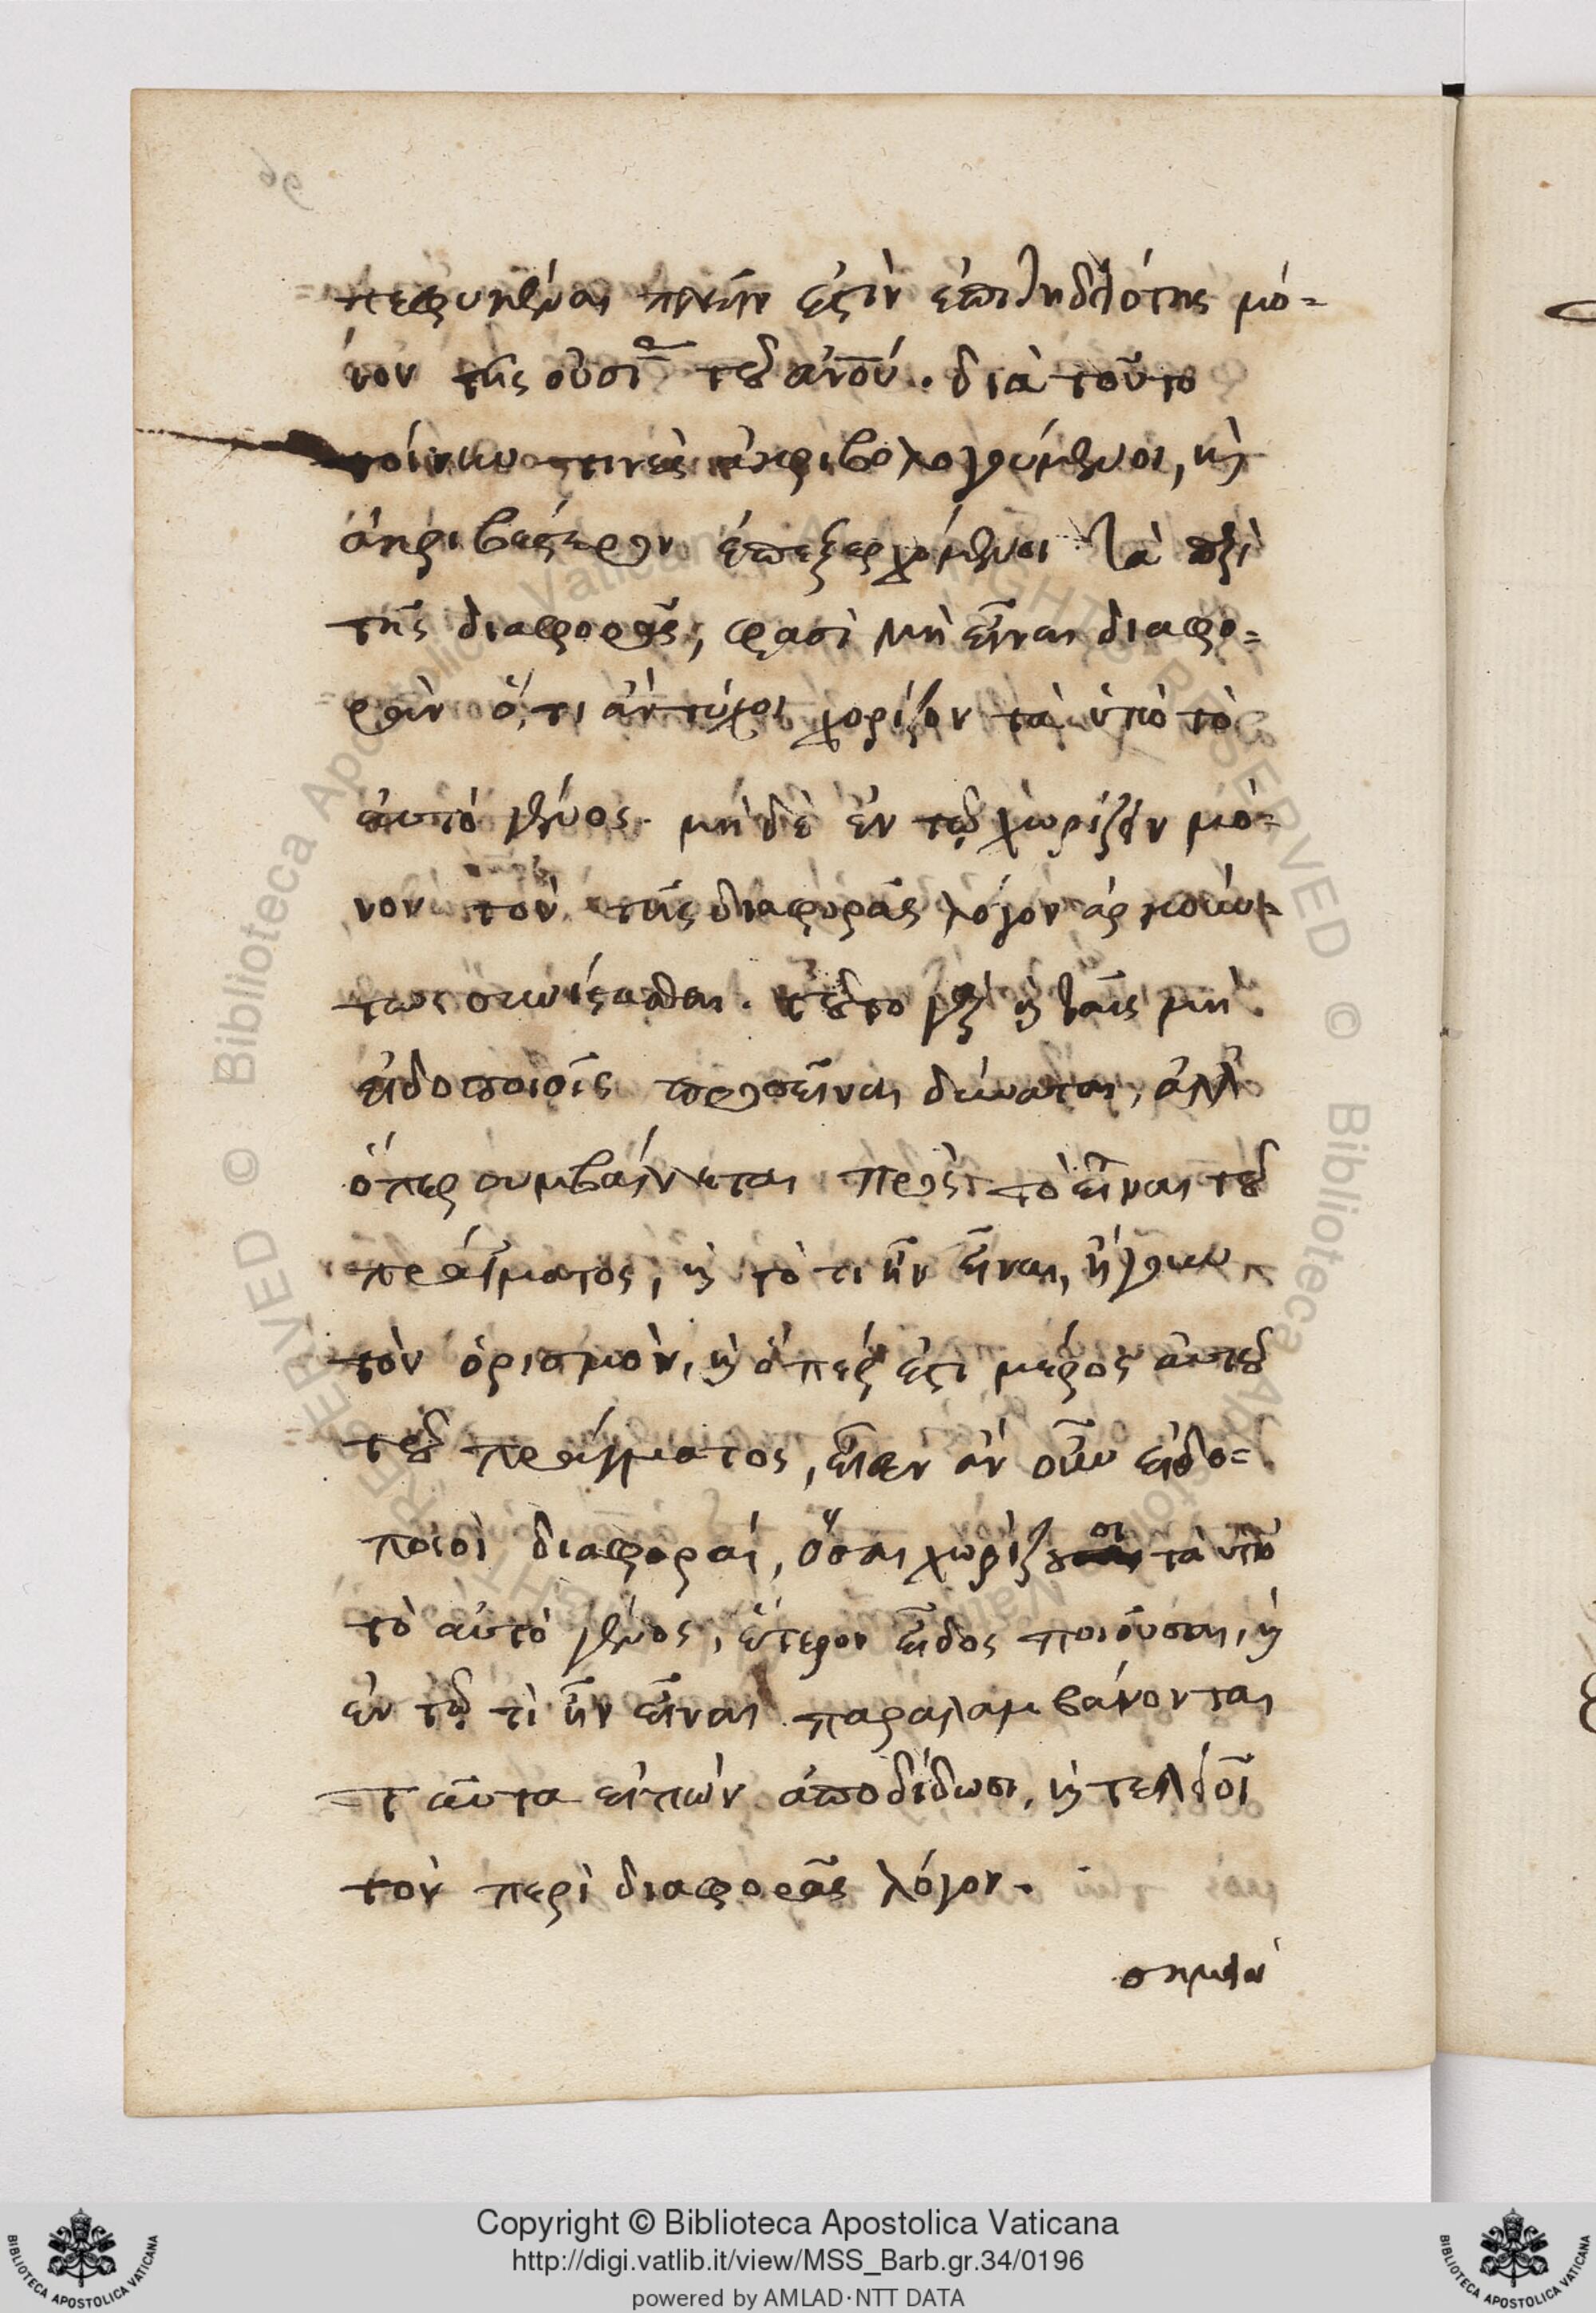 96
πεφυκέναι πλεῖν ἐστὶν ἐπιτηδειότης μό-
νον τῆς οὐσίας τοῦ ἀνου. διὰ τοῦτο
τοίνυν τινὲς ἀκριβολογούμενοι, καὶ
ἀκριβέστερον ἐπεξερχόμενοι τὰ περὶ
τῆς διαφορᾶς, φασὶ μὴ εἶναι διαφο-
ρὰν ὅ,τι ἂν τύχοι χορίζον τὰ ὑπὸ τὸ
αὐτὸ γένος. μηδὲ ἐν τῷ χωρίζειν μό-
νον τὸν τῆς διαφορᾶς λόγον
συνίστασθαι. τοῦτο γὰρ καὶ ταῖς μὴ
εἰδοποιοῖς προσεῖναι δύναται, ἀλλ'
ὅπερ συμβάλλεται πρὸς τὸ εἶναι τοῦ
πράγματος, καὶ τὸ τι ἦν εἶναι, ἤγουν
τὸν ὁρισμὸν, καὶ ὅπερ ἐστι μέρος αὐτοῦ
τοῦ πράγματος, εἶεν ἂν οὖν εἰδο-
ποιοὶ διαφοραί, ὅσαι χωρίζουσι τὰ ὑπὸ
τὸ αὐτὸ γένος, ἕτερον εἶδος ποιοῦσαι, καὶ
ἐν τῷ τὶ ἦν εἶναι παραλαμβάνονται
ταῦτα εἰπὼν ἀποδίδωσι, καὶ τελειοῖ
τὸν περὶ διαφορᾶς λόγον.
σημεῖον
Copyright © Biblioteca Apostolica Vaticana
http://digi.vatlib.it/view/MSS_Barb.gr.34/0196
powered by AMLAD·NTT DATA
BIBLIOTECA APOSTOLICA VATICANA
BIBLIOTECA APOSTOLICA VATICANA